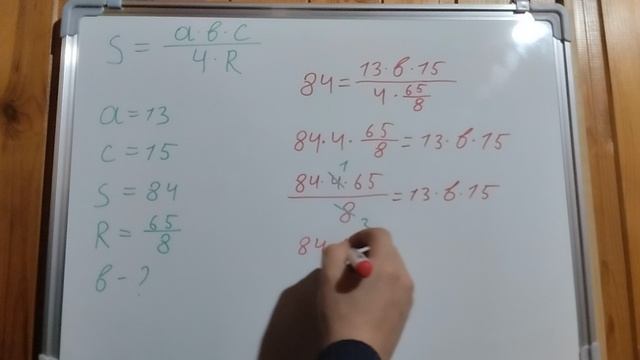 S = a·в·c / 4·R
a = 13
c = 15
S = 84
R = 65/8
в - ?
84 = 13·в·15 / 4·65/8
84·4·65/8 = 13·в·15
84·4·65 / 8 = 13·в·15
1
2
84